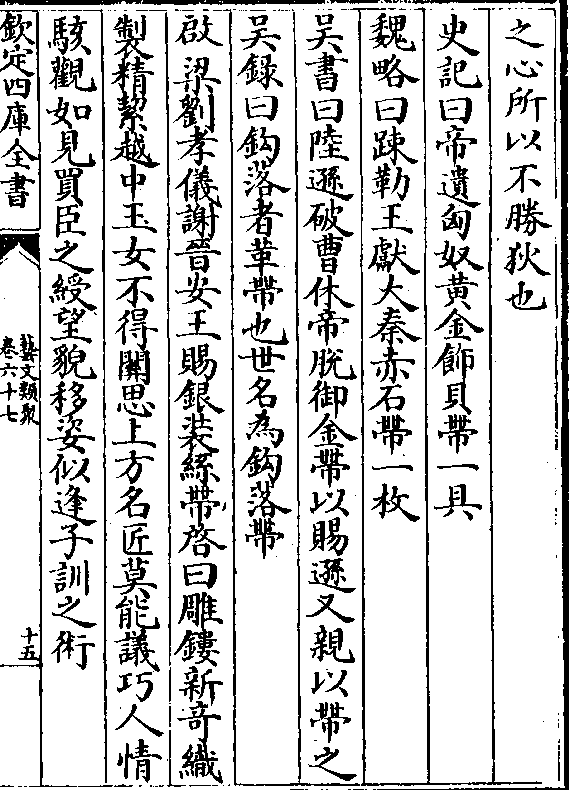 之心所以不勝狄也
史記曰帝遺匈奴黄金飾貝帶一具
魏略曰踈勒王獻大秦赤石帶一枚
吴書曰陸遜破曹休帝脱御金帶以賜遜又親以帶之
吴録曰鈎落者革帶也世名為鈎落帶
啟 梁劉孝儀謝晉安王賜銀装絲帶啓曰雕鏤新竒織
製精潔越中玉女不得關思上方名匠莫能議巧人情
駭觀如見買臣之綬望貌移姿似逢子訓之術
欽定四庫全書
藝文類聚
卷六十七
十五